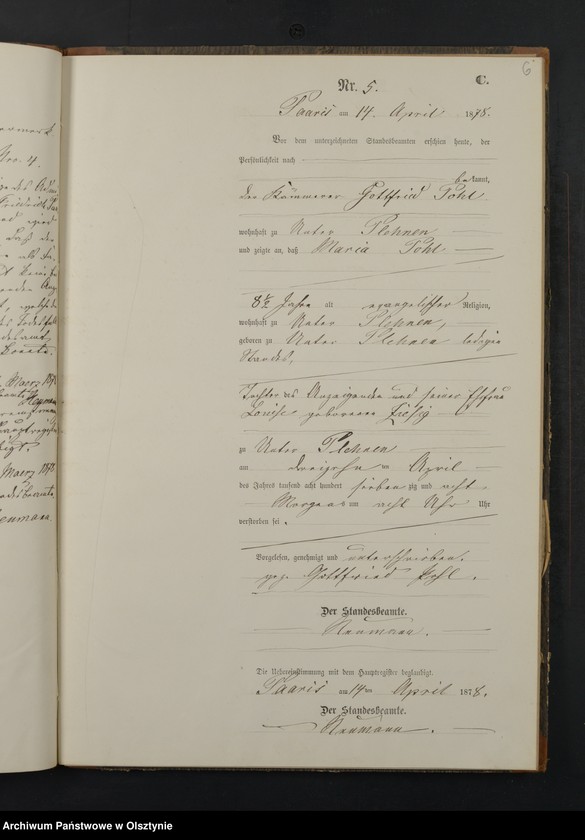 6
C.
Nr. 5.
Paaris am 14. April 1878.
Vor dem unterzeichneten Standesbeamten erschien heute, der
Persönlichkeit nach
bekannt,
der Kämmerer Gottfried Pohl
wohnhaft zu Unter Plehnen
und zeigte an, daß Maria Pohl
8½ Jahre alt evangelischer Religion,
wohnhaft zu Unter Plehnen,
geboren zu Unter Plehnen ledigen
Standes,
Tochter des Anzeigenden und seiner Ehefrau
Louise geborenen
zu Unter Plehnen
am dreizehnten April
des Jahres tausend acht hundert siebenzig und acht
Morgens um acht Uhr Uhr
verstorben sei.
Vorgelesen, genehmigt und unterschrieben.
gez. Gottfried Pohl.
Der Standesbeamte.
Naumann.
Die Uebereinstimmung mit dem Hauptregister beglaubigt.
Paaris am 14ten April 1878.
Der Standesbeamte.
Naumann.
Archiwum Państwowe w Olsztynie